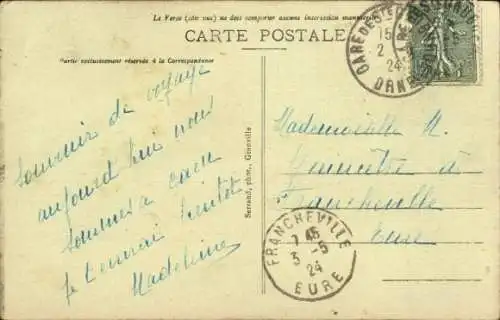 Le Verso (côté vue) ne doit comporter aucune inscription manuscrite
CARTE POSTALE
Partie exclusivement réservée à la Correspondance
GARE DE
15
2
24
ORNE
Souvenir de voyage
aujourd'hui nous
sommes a caen
je t'ecrirai bientôt
Madeleine
Serrand, phot., Granville
Mademoiselle M.
à
Francheville
Eure
FRANCHEVILLE
7 45
3 - 5
24
EURE